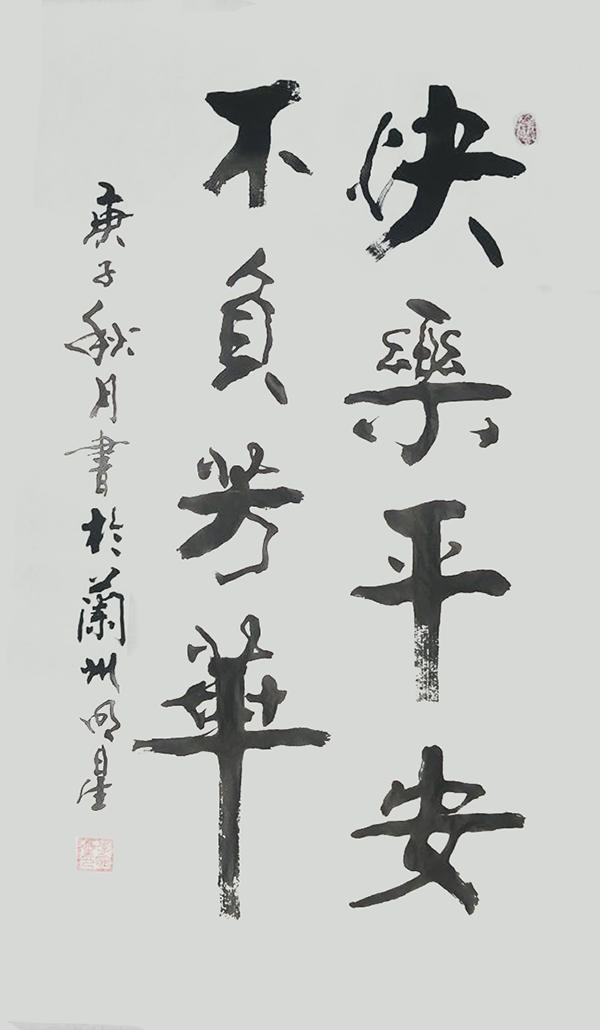 快樂平安
不負芳華
庚子秋月書於蘭州明星